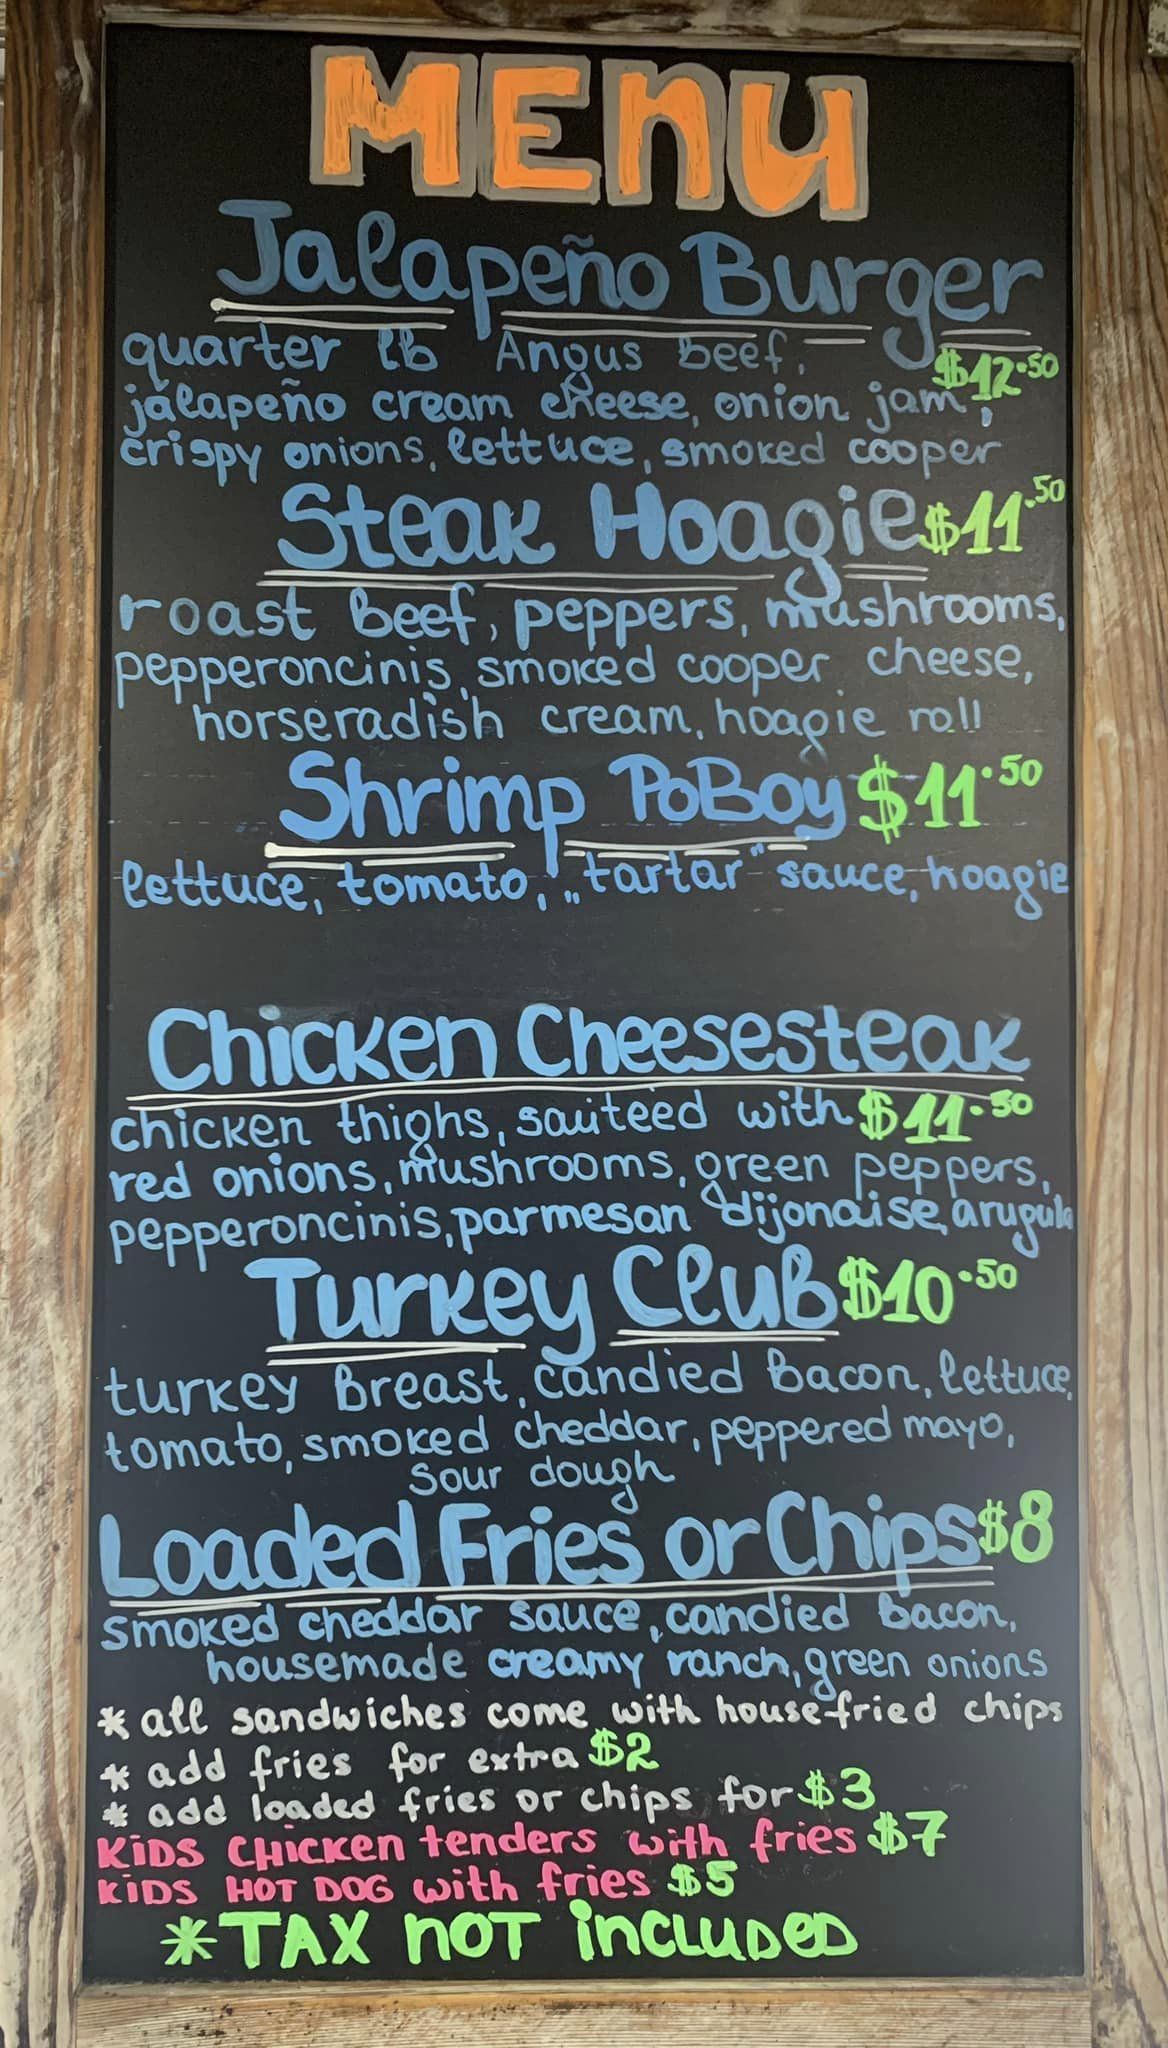 MENU
Jalapeño Burger
quarter lb Angus Beef, $12.50
jalapeño cream cheese, onion jam,
crispy onions, lettuce, smoked cooper
Steak Hoagie $11.50
roast Beef, peppers, mushrooms,
pepperoncinis, smoked cooper cheese,
horseradish cream, hoagie roll
Shrimp PoBoy $11.50
lettuce, tomato, „tartar" sauce, hoagie
Chicken Cheesesteak
chicken thighs, sauteed with $11.50
red onions, mushrooms, green peppers,
pepperoncinis, parmesan dijonaise, arugula
Turkey Club $10.50
turkey Breast, candied Bacon, lettuce,
tomato, smoked cheddar, peppered mayo,
sour dough
Loaded Fries or Chips $8
smoked cheddar sauce, candied Bacon,
housemade creamy ranch, green onions
* all sandwiches come with house fried chips
* add fries for extra $2
* add loaded fries or chips for $3
KiDS CHicken tenders with fries $7
KiDS HOT DOG with fries $5
*TAX NOT iNCLUDED